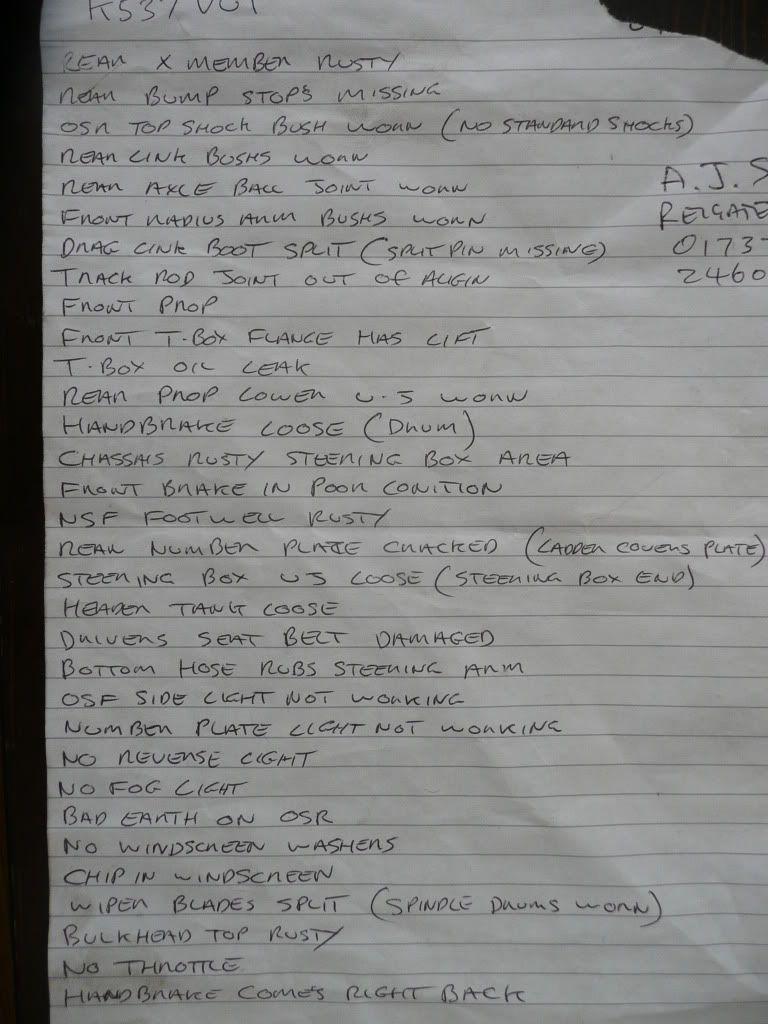 REAR X MEMBER RUSTY
REAR BUMP STOPS MISSING
OSR TOP SHOCK BUSH WORN (NO STANDARD SHOCKS)
REAR LINK BUSHS WORN
REAR AXLE BALL JOINT WORN
FRONT RADIUS ARM BUSHS WORN
DRAG LINK BOOT SPLIT (SPLIT PIN MISSING)
TRACK ROD JOINT OUT OF ALIGIN
FRONT PROP
FRONT T.BOX FLANGE HAS LIFT
T.BOX OIL LEAK
REAR PROP LOWER U.J WORN
HANDBRAKE LOOSE (DRUM)
CHASSAIS RUSTY STEERING BOX AREA
FRONT BRAKE IN POOR CONITION
NSF FOOTWELL RUSTY
REAR NUMBER PLATE CRACKED (LADDER COVERS PLATE)
STEERING BOX UJ LOOSE (STEERING BOX END)
HEADER TANG LOOSE
DRIVERS SEAT BELT DAMAGED
BOTTOM HOSE RUBS STEERING ARM
OSF SIDE LIGHT NOT WORKING
NUMBER PLATE LIGHT NOT WORKING
NO REVERSE LIGHT
NO FOG LIGHT
BAD EARTH ON OSR
NO WINDSCREEN WASHERS
CHIP IN WINDSCREEN
WIPER BLADES SPLIT (SPINDLE DRUMS WORN)
BULKHEAD TOP RUSTY
NO THROTTLE
HANDBRAKE COME'S RIGHT BACK
A.J.S
REIGATE
01737
2460